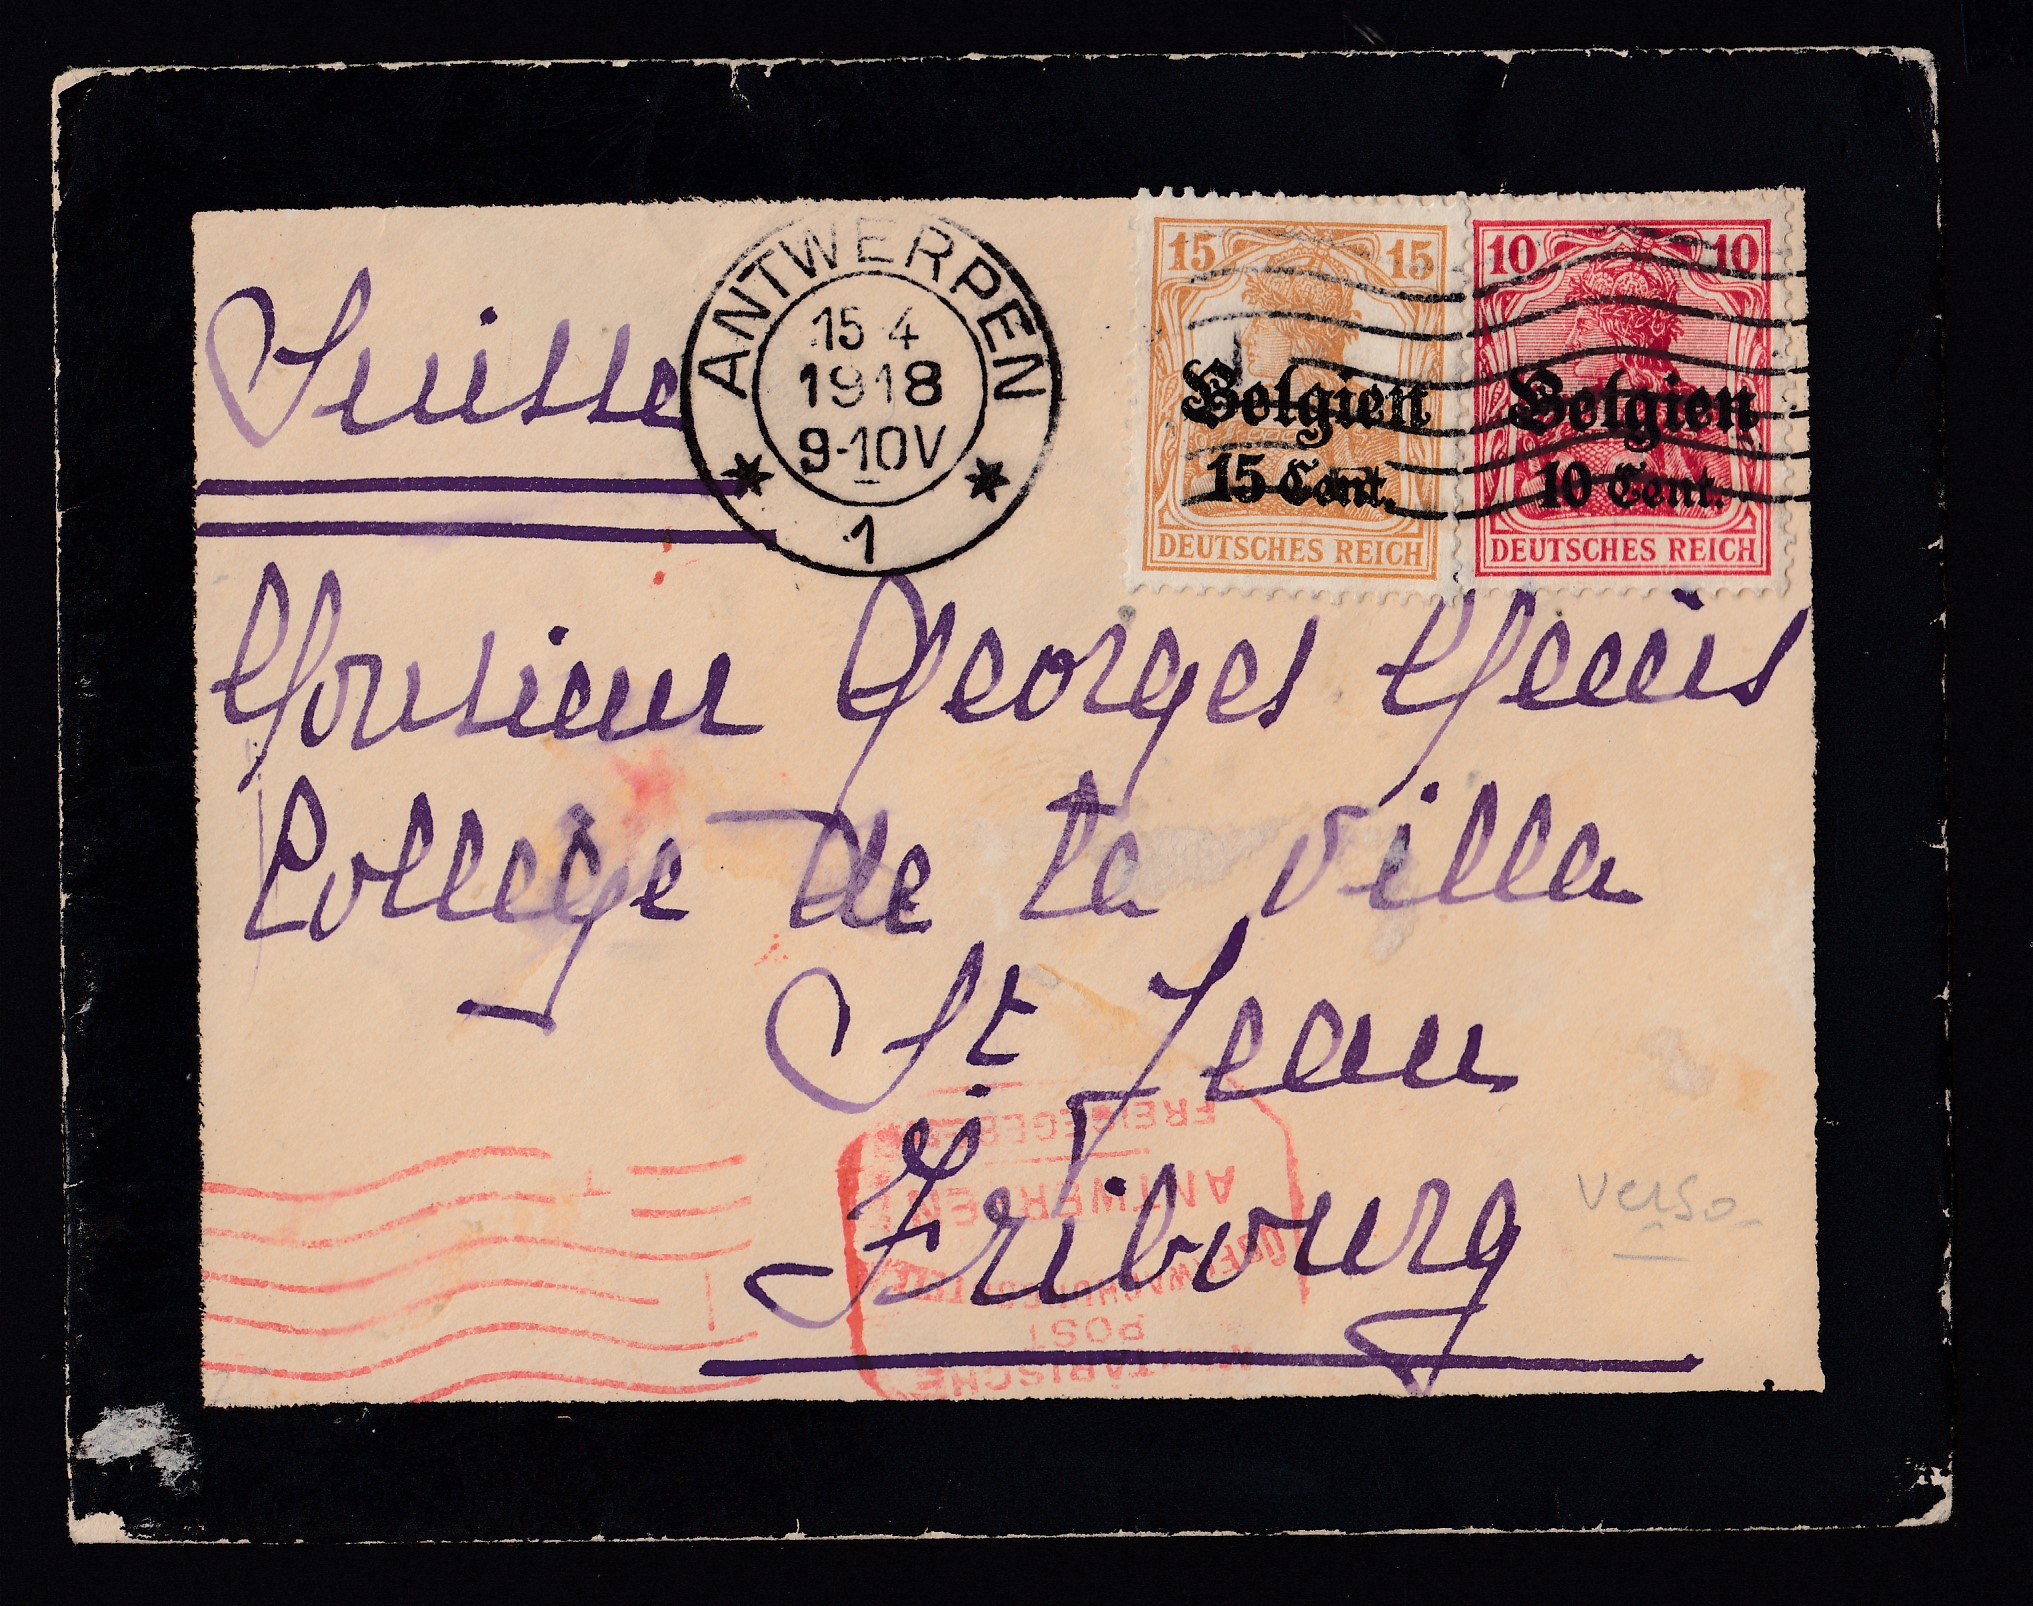 Suisse
ANTWERPEN
15 4
1918
9-10V
1
15 15
Belgien
15 Cent.
DEUTSCHES REICH
10 10
Belgien
10 Cent.
DEUTSCHES REICH
Monsieur Georges
College de la villa
St Jean
Fribourg
verso
FREIGEGEBEN
ANTWERPEN
POST
MILITÄRISCHE